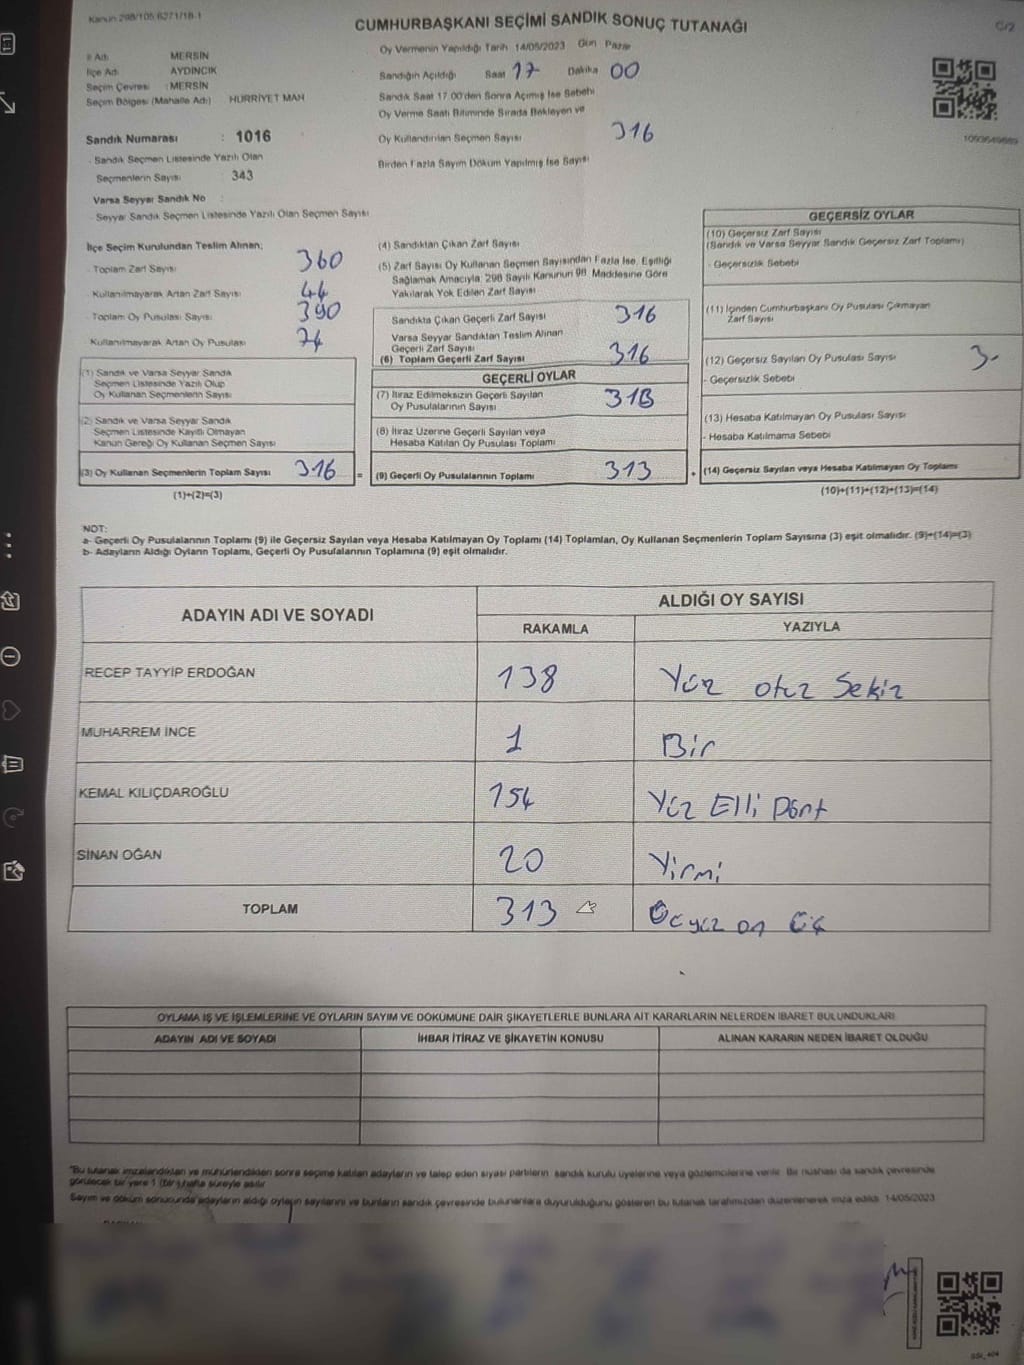 Kanun 298/105 6271/18-1
CUMHURBAŞKANI SEÇİMİ SANDIK SONUÇ TUTANAĞI
C/2
İl Adı MERSİN
İlçe Adı AYDINCIK
Seçim Çevresi : MERSİN
Seçim Bölgesi (Mahalle Adı) HÜRRİYET MAH
Sandık Numarası : 1016
- Sandık Seçmen Listesinde Yazılı Olan
Seçmenlerin Sayısı 343
Varsa Seyyar Sandık No
- Seyyar Sandık Seçmen Listesinde Yazılı Olan Seçmen Sayısı
Oy Vermenin Yapıldığı Tarih 14/05/2023 Gün Pazar
Sandığın Açıldığı Saat 17 Dakika 00
Sandık Saat 17.00'den Sonra Açımış İse Sebebi
Oy Verme Saati Bitiminde Sırada Bekleyen ve
Oy Kullandırılan Seçmen Sayısı 316
Birden Fazla Sayım Döküm Yapılmış İse Sayısı
1093649889
İlçe Seçim Kurulundan Teslim Alınan;
- Toplam Zarf Sayısı 360
- Kullanılmayarak Artan Zarf Sayısı 44
- Toplam Oy Pusulası Sayısı 390
Kullanılmayarak Artan Oy Pusulası 74
(1) Sandık ve Varsa Seyyar Sandık
Seçmen Listesinde Yazılı Olup
Oy Kullanan Seçmenlerin Sayısı
(2) Sandık ve Varsa Seyyar Sandık
Seçmen Listesinde Kayıtlı Olmayan
Kanun Gereği Oy Kullanan Seçmen Sayısı
(3) Oy Kullanan Seçmenlerin Toplam Sayısı 316 =
(1)+(2)=(3)
(4) Sandıktan Çıkan Zarf Sayısı
(5) Zarf Sayısı Oy Kullanan Seçmen Sayısından Fazla İse, Eşitliği
Sağlamak Amacıyla; 298 Sayılı Kanunun 98. Maddesine Göre
Yakılarak Yok Edilen Zarf Sayısı
Sandıkta Çıkan Geçerli Zarf Sayısı 316
Varsa Seyyar Sandıktan Teslim Alınan
Geçerli Zarf Sayısı
(6) Toplam Geçerli Zarf Sayısı 316
GEÇERLİ OYLAR
(7) İtiraz Edilmeksizin Geçerli Sayılan
Oy Pusulalarının Sayısı 313
(8) İtiraz Üzerine Geçerli Sayılan veya
Hesaba Katılan Oy Pusulası Toplamı
(9) Geçerli Oy Pusulalarının Toplamı 313 +
GEÇERSİZ OYLAR
(10) Geçersiz Zarf Sayısı
(Sandık ve Varsa Seyyar Sandık Geçersiz Zarf Toplamı)
- Geçersizlik Sebebi
(11) İçinden Cumhurbaşkanı Oy Pusulası Çıkmayan
Zarf Sayısı
(12) Geçersiz Sayılan Oy Pusulası Sayısı 3-
- Geçersizlik Sebebi
(13) Hesaba Katılmayan Oy Pusulası Sayısı
- Hesaba Katılmama Sebebi
(14) Geçersiz Sayılan veya Hesaba Katılmayan Oy Toplamı
(10)+(11)+(12)+(13)=(14)
NOT:
a- Geçerli Oy Pusulalarının Toplamı (9) ile Geçersiz Sayılan veya Hesaba Katılmayan Oy Toplamı (14) Toplamları, Oy Kullanan Seçmenlerin Toplam Sayısına (3) eşit olmalıdır. (9)+(14)=(3)
b- Adayların Aldığı Oyların Toplamı, Geçerli Oy Pusulalarının Toplamına (9) eşit olmalıdır.
ADAYIN ADI VE SOYADI
ALDIĞI OY SAYISI
RAKAMLA YAZIYLA
RECEP TAYYİP ERDOĞAN 138 Yüz otuz Sekiz
MUHARREM İNCE 1 Bir
KEMAL KILIÇDAROĞLU 154 Yüz Elli Dört
SİNAN OĞAN 20 Yirmi
TOPLAM 313 Üçyüz on Üç
OYLAMA İŞ VE İŞLEMLERİNE VE OYLARIN SAYIM VE DÖKÜMÜNE DAİR ŞİKAYETLERLE BUNLARA AİT KARARLARIN NELERDEN İBARET BULUNDUKLARI
ADAYIN ADI VE SOYADI İHBAR İTİRAZ VE ŞİKAYETİN KONUSU ALINAN KARARIN NEDEN İBARET OLDUĞU
*Bu tutanak imzalandıktan ve mühürlendikten sonra seçime katılan adayların ve talep eden siyasi partilerin sandık kurulu üyelerine veya gözlemcilerine verilir. Bir nüshası da sandık çevresinde
görülecek bir yere 1 (bir) hafta süreyle asılır
Sayım ve döküm sonucunda adayların aldığı oyların sayılarını ve bunların sandık çevresinde bulunanlara duyurulduğunu gösteren bu tutanak tarafımızdan düzenlenerek imza edildi. 14/05/2023